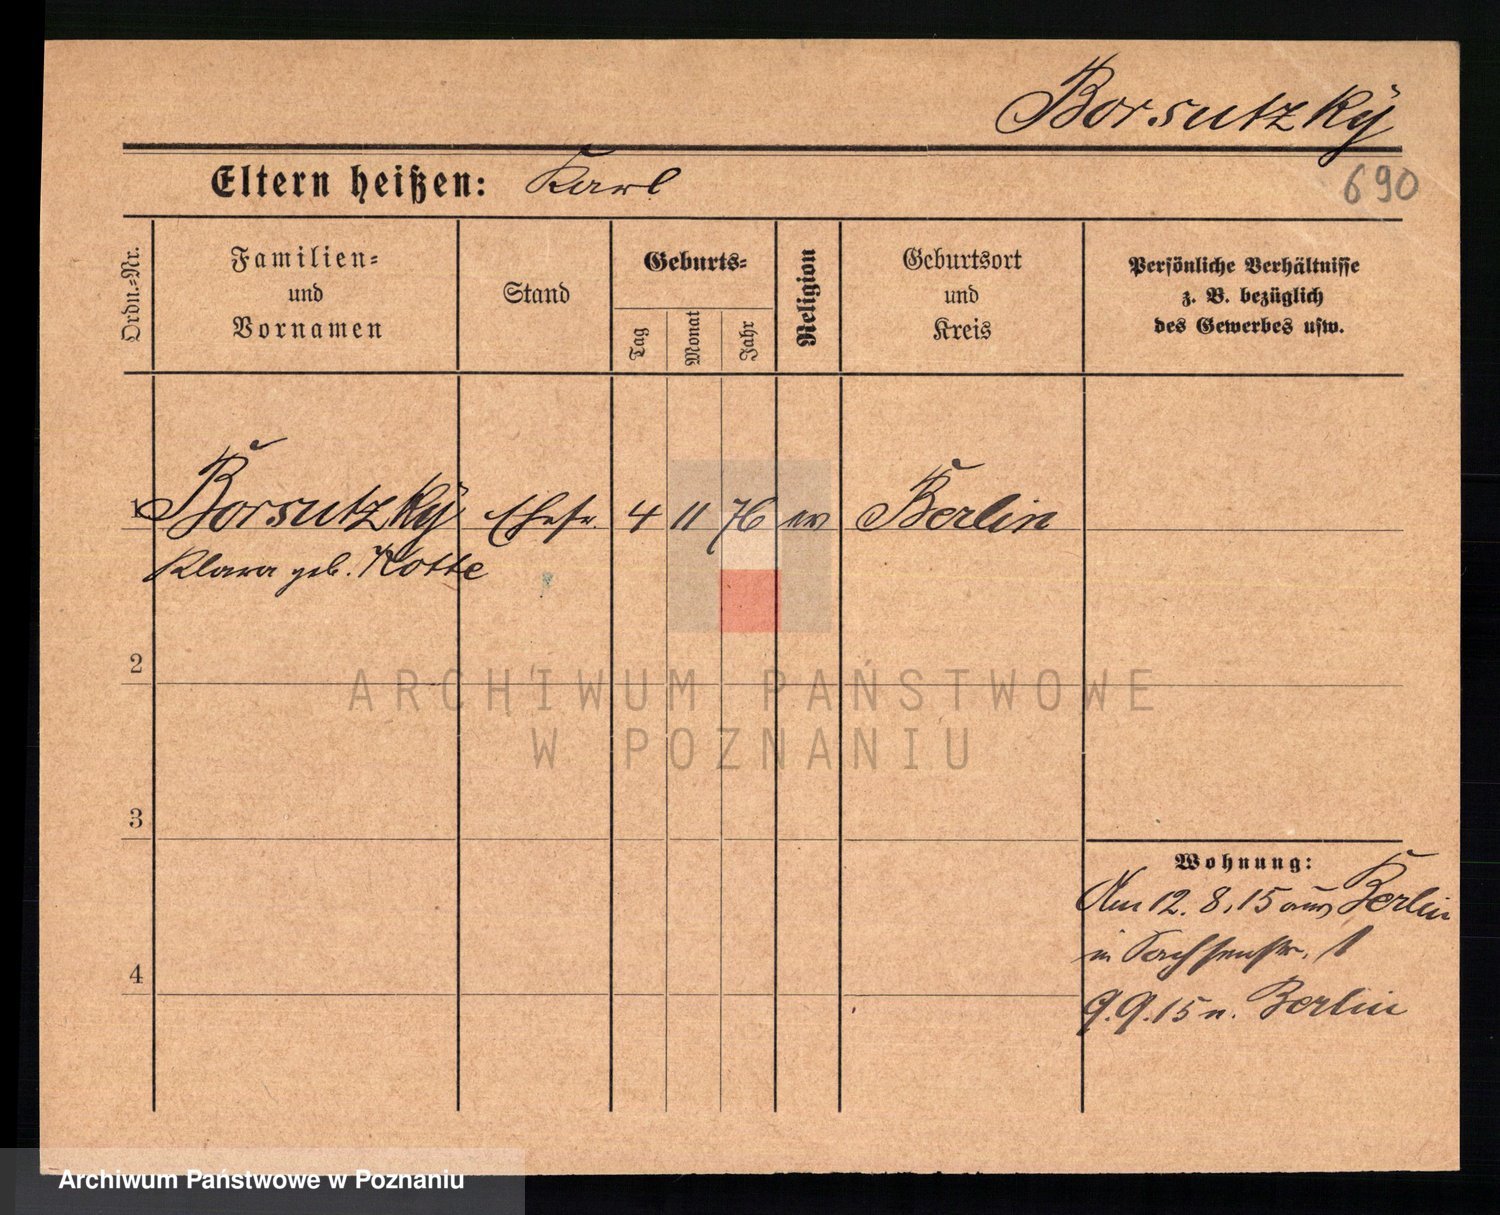 Borsutzky
Eltern heißen: Karl
690
Ordn.-Nr.
Familien-
und
Vornamen
Stand
Geburts-
Tag
Monat
Jahr
Religion
Geburtsort
und
Kreis
Persönliche Verhältnisse
z. B. bezüglich
des Gewerbes usw.
1 Borsutzky Ehefr. 4 11 76 ev Berlin
Klara geb. Kotte
2
ARCHIWUM PAŃSTWOWE
W POZNANIU
3
Wohnung:
Am 12. 8. 15 aus Berlin
in Sachsenstr. 1
4
9. 9. 15 n. Berlin
Archiwum Państwowe w Poznaniu